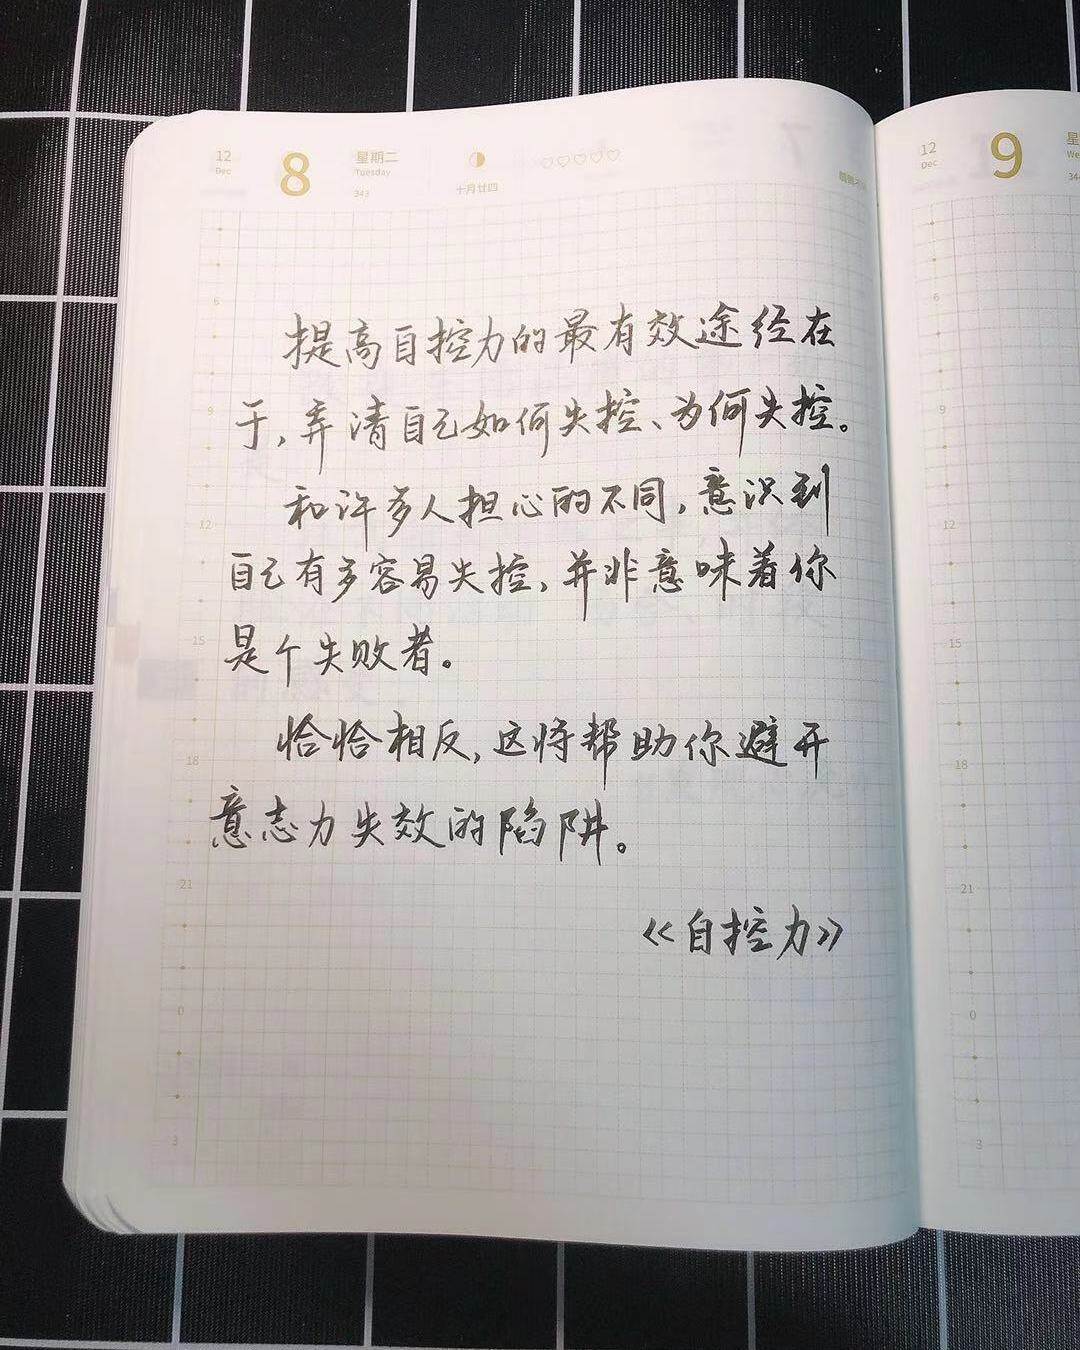 12
Dec
8
星期二
Tuesday
343
十月廿四
提高自控力的最有效途经在
于,弄清自己如何失控、为何失控。
和许多人担心的不同,意识到
自己有多容易失控,并非意味着你
是个失败者。
恰恰相反,这将帮助你避开
意志力失效的陷阱。
《自控力》
6
9
12
15
18
21
0
3
12
Dec
9
星
We
344
6
9
12
15
18
21
0
3